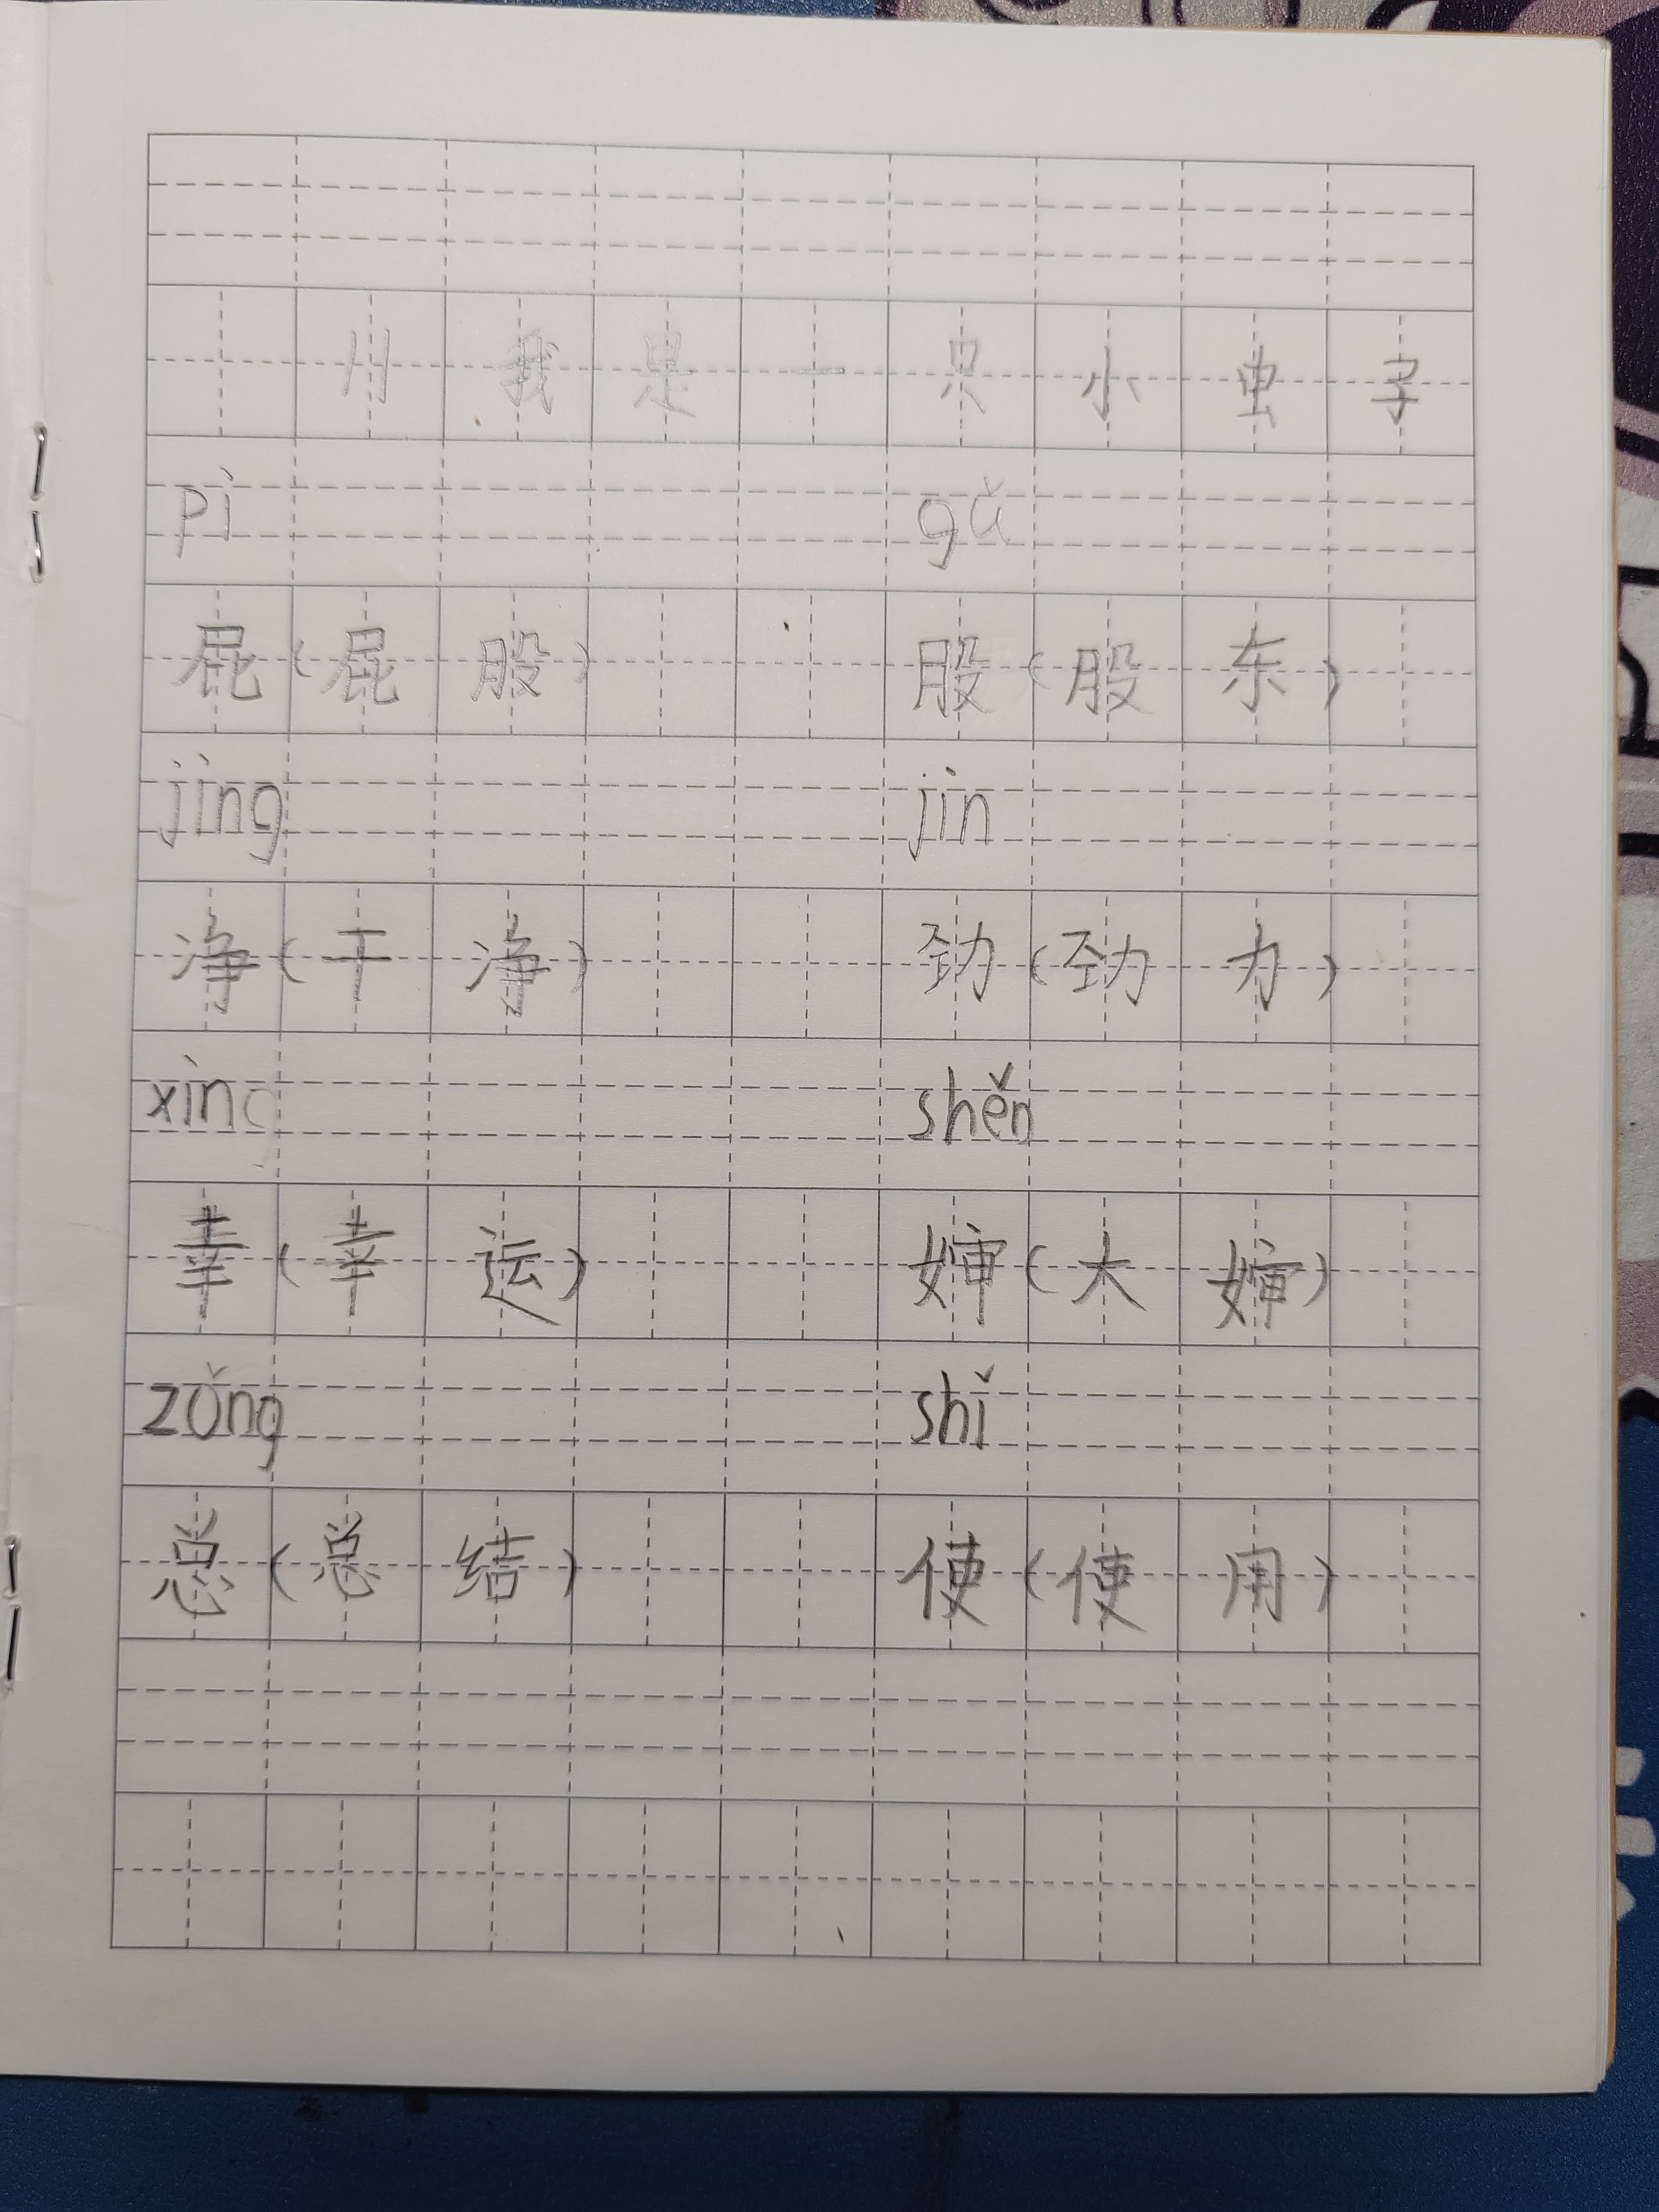 11 我是一只小虫子
pì gǔ
屁(屁股) 股(股东)
jìng jìn
净(干净) 劲(劲力)
xìng shěn
幸(幸运) 婶(大婶)
zǒng shǐ
总(总结) 使(使用)